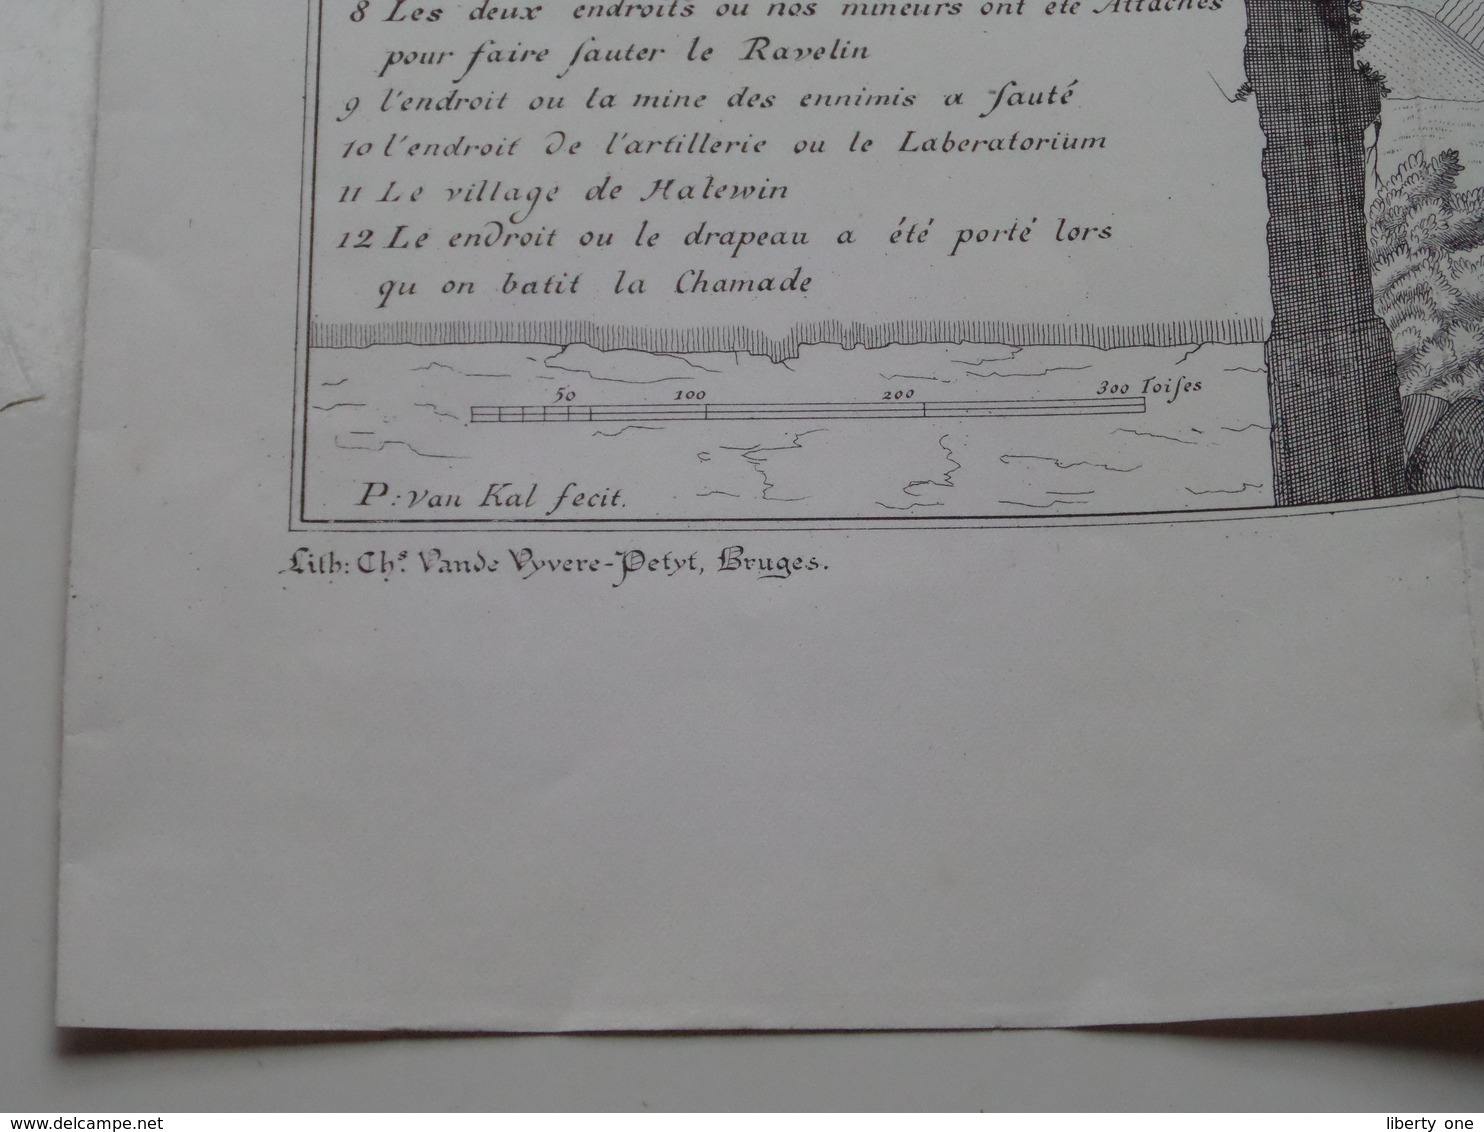 8 Les deux endroits ou nos mineurs ont été Attachés
pour faire ſauter le Ravelin
9 l'endroit ou la mine des ennimis a ſauté
10 l'endroit de l'artillerie ou le Laberatorium
11 Le village de Halewin
12 Le endroit ou le drapeau a été porté lors
qu on batit la Chamade
50 100 200 300 Toiſes
P: van Kal fecit.
Lith: Chs. Vande Vyvere-Petyt, Bruges.
www.delcampe.net
liberty one